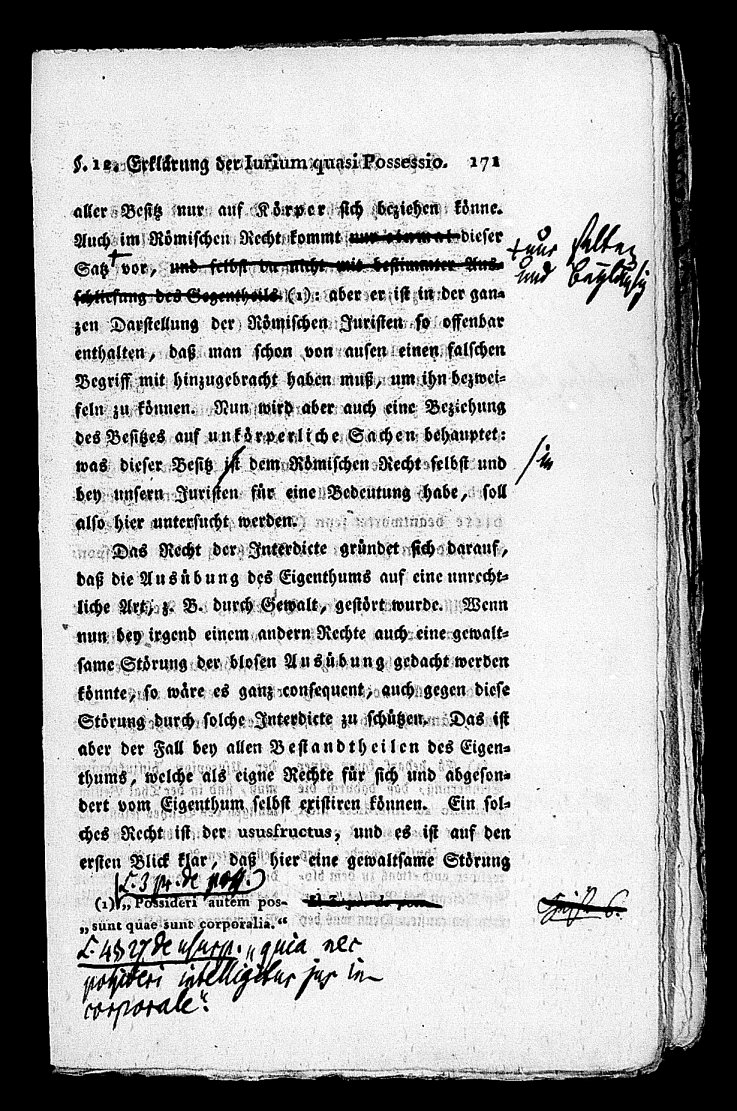 §. 12. Erklärung der Iurium quasi Possessio. 171
aller Besitz nur auf Körper sich beziehen könne.
Auch im Römischen Recht kommt nur einmal dieser
Satz vor, und selbst da nicht mit bestimmter Aus-
schließung des Gegentheils (1): aber er ist in der gan-
zen Darstellung der Römischen Juristen so offenbar
enthalten, daß man schon von ausen einen falschen
Begriff mit hinzugebracht haben muß, um ihn bezwei-
feln zu können. Nun wird aber auch eine Beziehung
des Besitzes auf unkörperliche Sachen behauptet:
was dieser Besitz ist dem Römischen Recht selbst und
bey unsern Juristen für eine Bedeutung habe, soll
also hier untersucht werden.
Das Recht der Interdicte gründet sich darauf,
daß die Ausübung des Eigenthums auf eine unrecht-
liche Art, z. B. durch Gewalt, gestört wurde. Wenn
nun bey irgend einem andern Rechte auch eine gewalt-
same Störung der blosen Ausübung gedacht werden
könnte, so wäre es ganz consequent, auch gegen diese
Störung durch solche Interdicte zu schützen. Das ist
aber der Fall bey allen Bestandtheilen des Eigen-
thums, welche als eigne Rechte für sich und abgeson-
dert vom Eigenthum selbst existiren können. Ein sol-
ches Recht ist der ususfructus, und es ist auf den
ersten Blick klar, daß hier eine gewaltsame Störung
+ nur selten
und beyläufig
/ in
L. 3 pr. de poss.)
(1) „Possideri autem pos-
„sunt quae sunt corporalia.“
L. 4 § 27 de usurp. „quia nec
possideri intelligitur jus in-
corporale“.